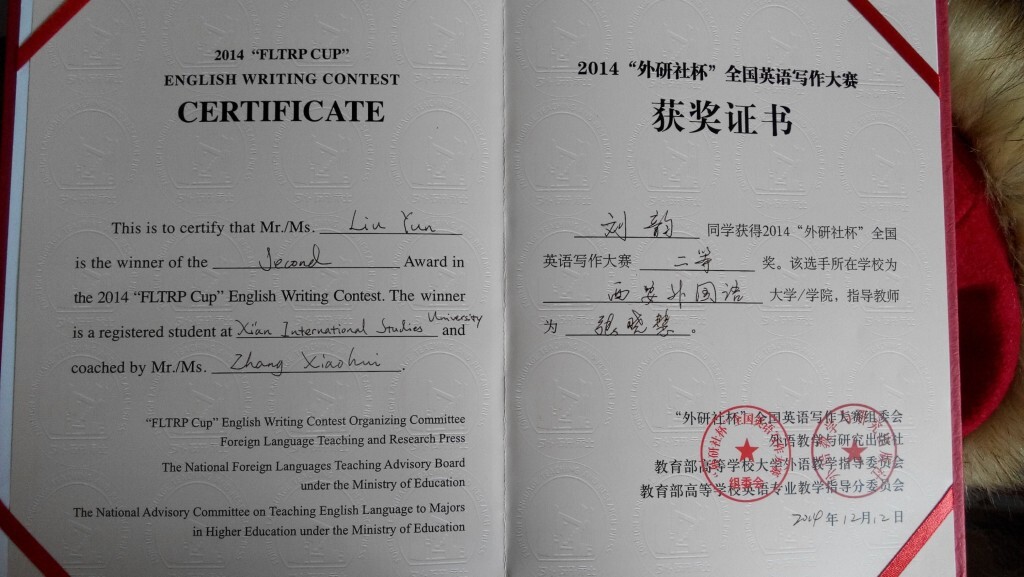 2014 “FLTRP CUP”
ENGLISH WRITING CONTEST
CERTIFICATE
This is to certify that Mr./Ms. Liu Yun
is the winner of the Second Award in
the 2014 “FLTRP Cup” English Writing Contest. The winner
is a registered student at Xi'an International Studies University and
coached by Mr./Ms. Zhang Xiaohui.
“FLTRP Cup” English Writing Contest Organizing Committee
Foreign Language Teaching and Research Press
The National Foreign Languages Teaching Advisory Board
under the Ministry of Education
The National Advisory Committee on Teaching English Language to Majors
in Higher Education under the Ministry of Education
2014 “外研社杯” 全国英语写作大赛
获奖证书
刘韵 同学获得2014 “外研社杯” 全国
英语写作大赛 二等 奖。该选手所在学校为
西安外国语 大学/学院，指导教师
为 张晓慧。
“外研社杯”全国英语写作大赛组委会
外语教学与研究出版社
教育部高等学校大学外语教学指导委员会
教育部高等学校英语专业教学指导分委员会
2014年12月12日
“外研社杯”全国英语写作大赛
组委会